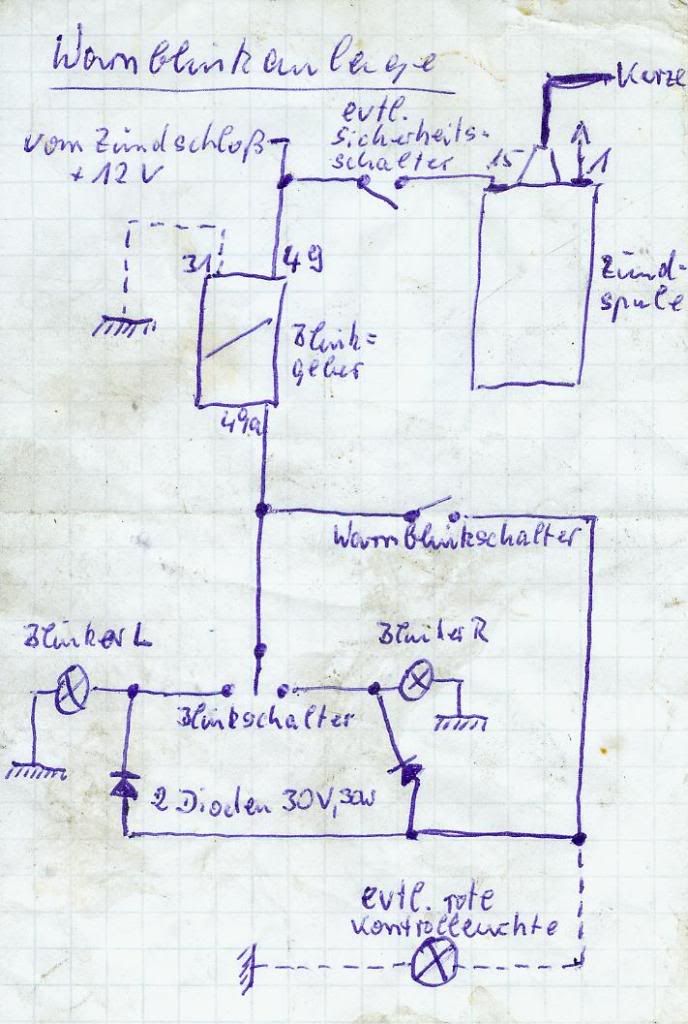 Warnblinkanlage
Kerze
evtl.
Sicherheits-
schalter
vom Zündschloß
+ 12 V
15
1
31
49
Zünd-
spule
Blink=
geber
49a
Warnblinkschalter
Blinker L
Blinker R
Blinkschalter
2 Dioden 30V, 30W
evtl. rote
Kontrolleuchte